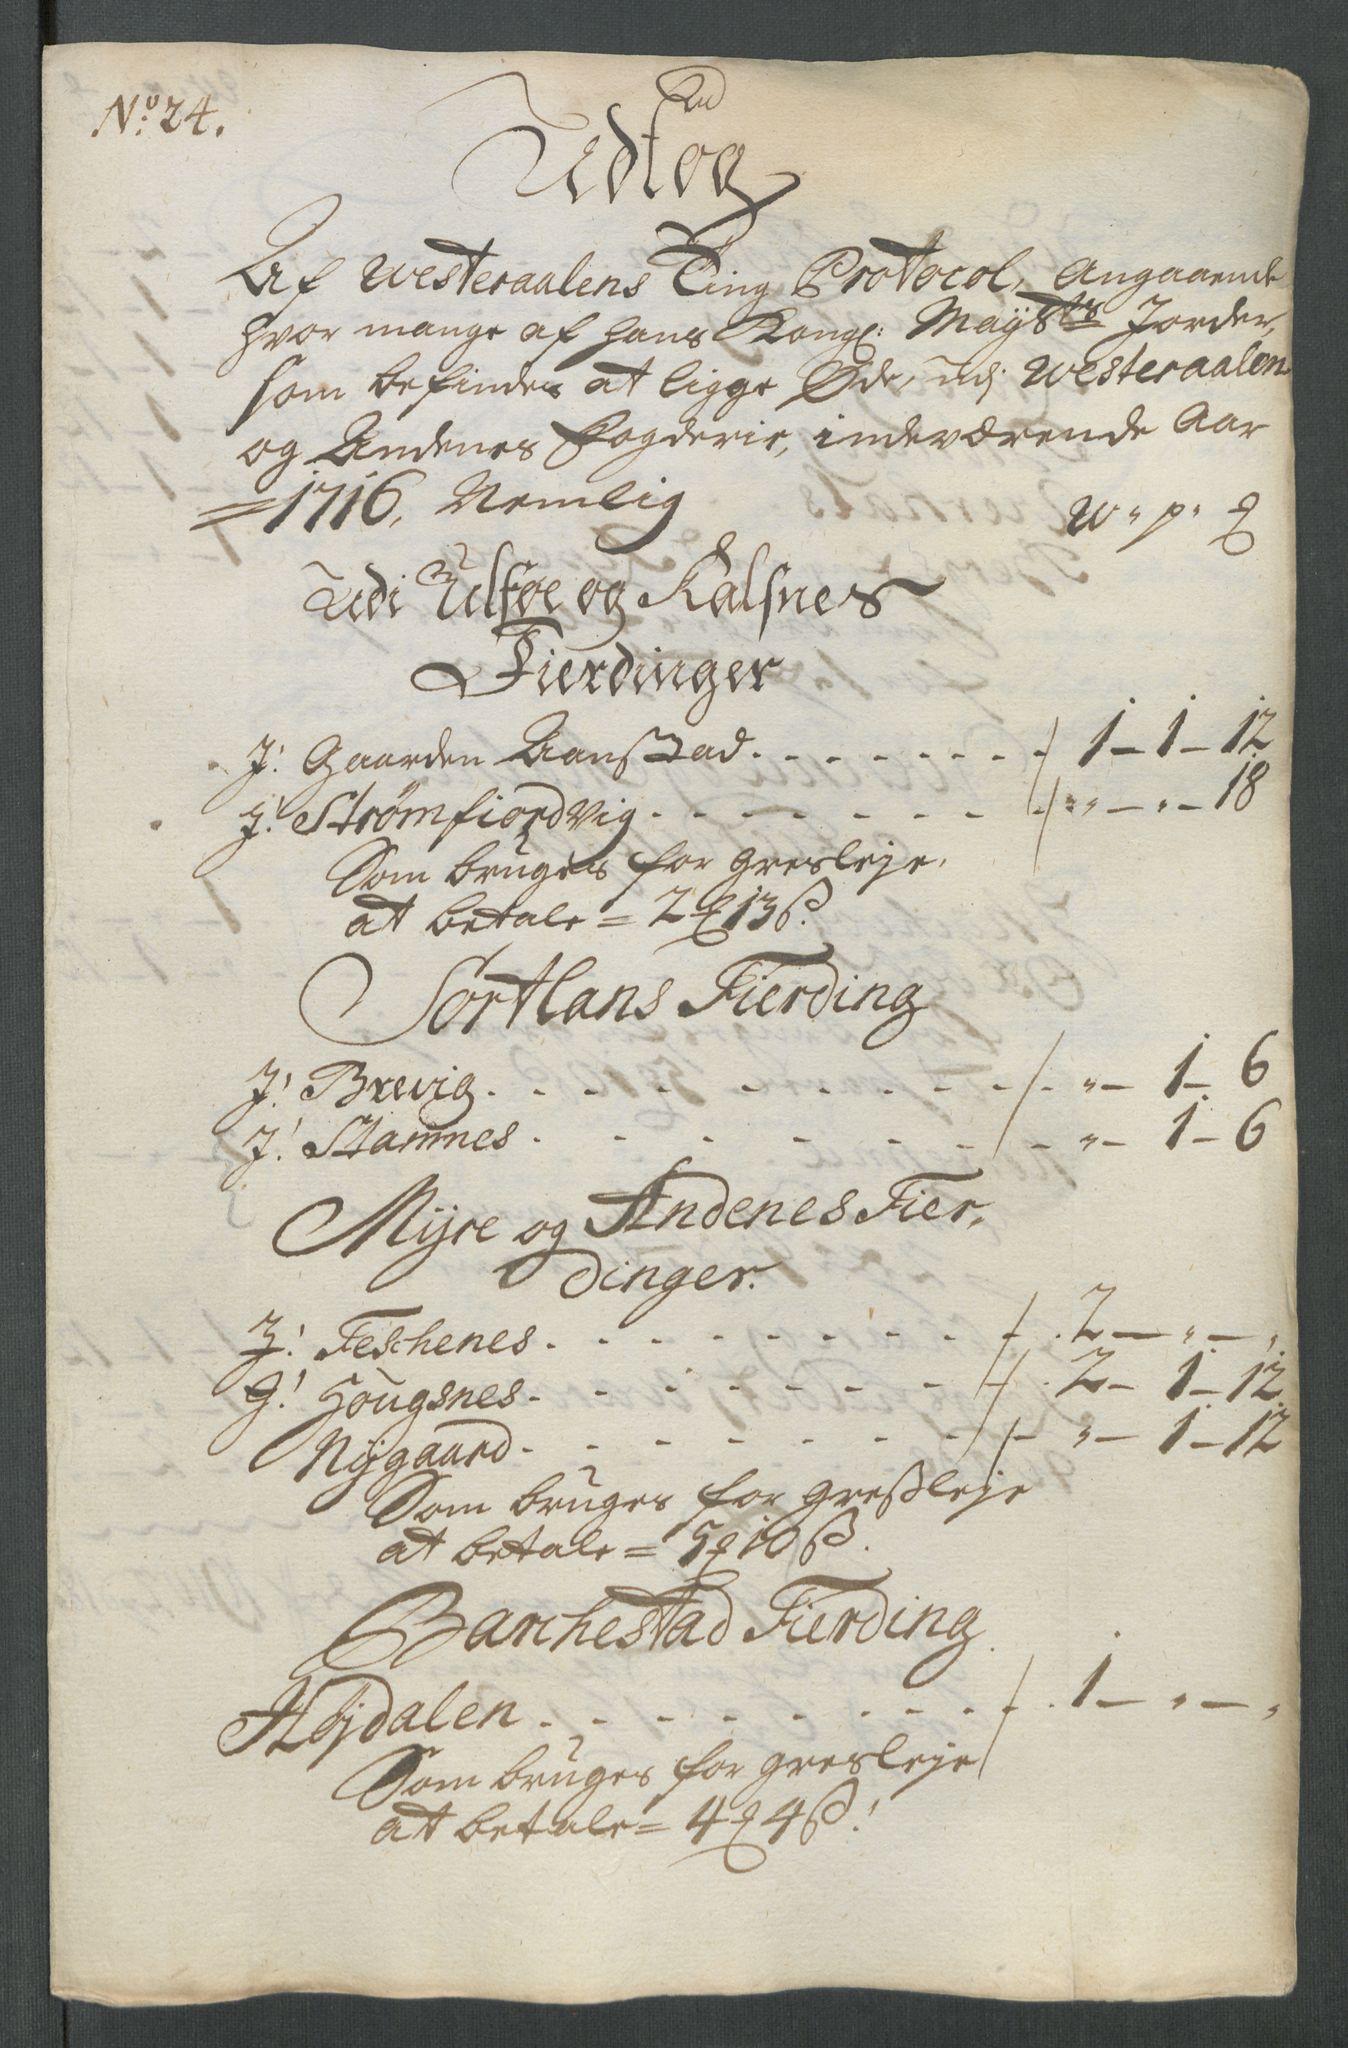 No: 24.
Udtog
Af Westeraalens Ting Protocol, Angaaende
hvor mange af hans Kongl: Maÿsts Jorder,
som befindes at ligge Øde, udj Westeraalen
og Andenes fogderie, indeværende Aar
=1716, Nemlig W " p "
Udi Ulføe og Kalsnes
Fierdinger
J: Gaarden Aanstad - - - - - - - 1 - 1 - 12
J: Strømfiordvig - - - - - - - " - " - 18
Som bruges for Gresleje,
at betale = 2 13 ß.
Sortlans Fierding
J: Brevig - - - - - - - " - 1 - 6
J: Stamnes - - - - - - - " - 1 - 6
Mÿre og Andenes Fier,
dinger.
J: Feschenes - - - - - - - 2 - " - "
G: Hougsnes - - - - - - - 2 - 1 - 12
Nÿgaard - - - - - - - " - 1 - 12
Som bruges for Greßleje
at betale = 5 10 ß.
Barchestad Fierding
Høÿdalen - - - - - - - 1 - " - "
Som bruges for gresleje
at betale = 4 4 ß!